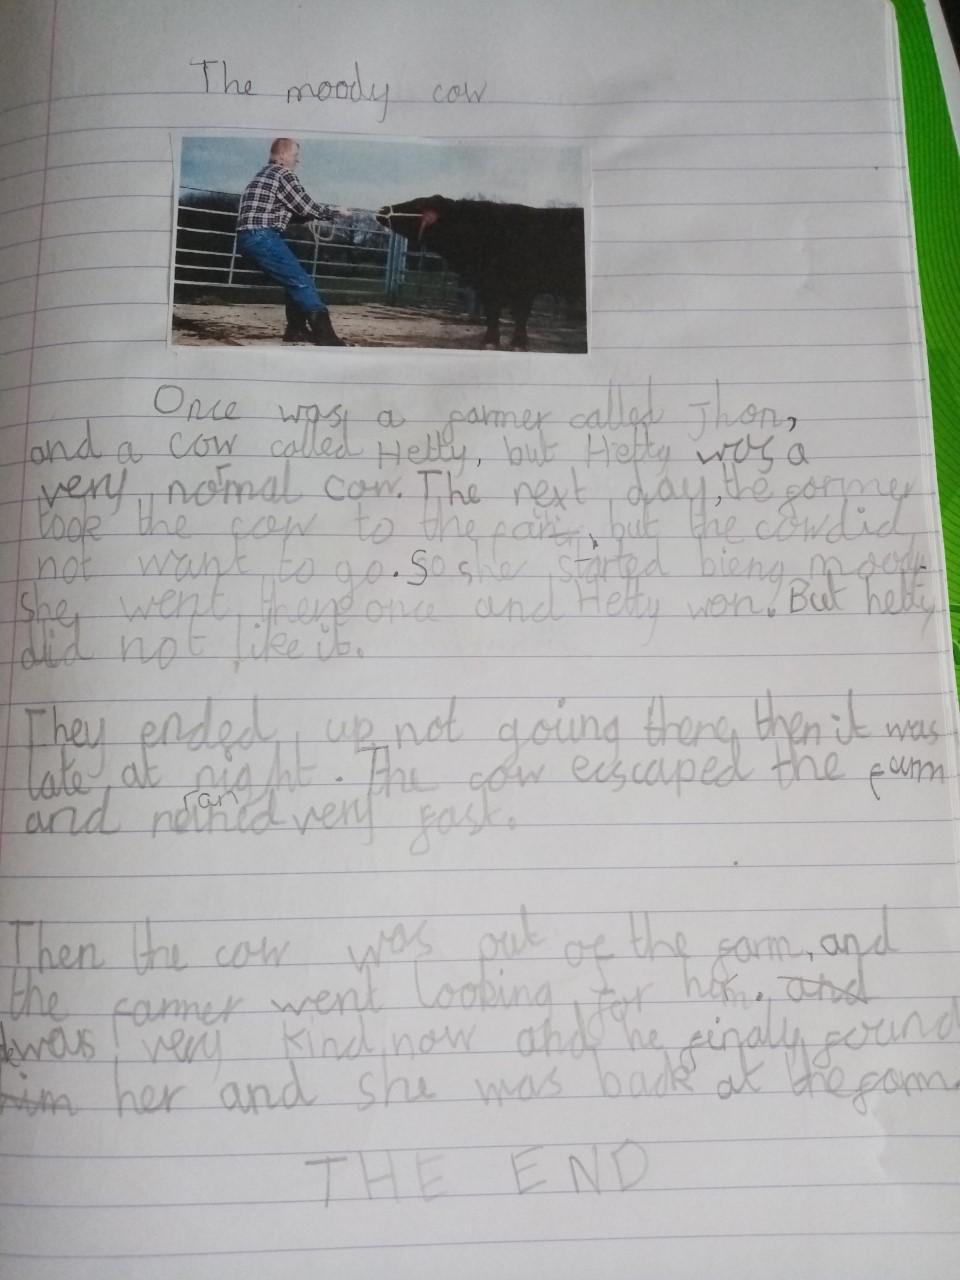 The moody cow
Once was a farmer called Jhon,
and a cow called Hetty, but Hetty was a
very normal cow. The next day, the farmer
took the cow to the fair, but the cow did
not want to go. So she started bieng moody.
she went there once and Hetty won. But hetty
did not like it.
They ended up not going there, then it was
late at night. The cow ecscaped the farm
and ran very fast.
Then the cow was out of the farm, and
the farmer went looking for him. and
was very kind now and he finaly found
him her and she was back at the farm
THE END